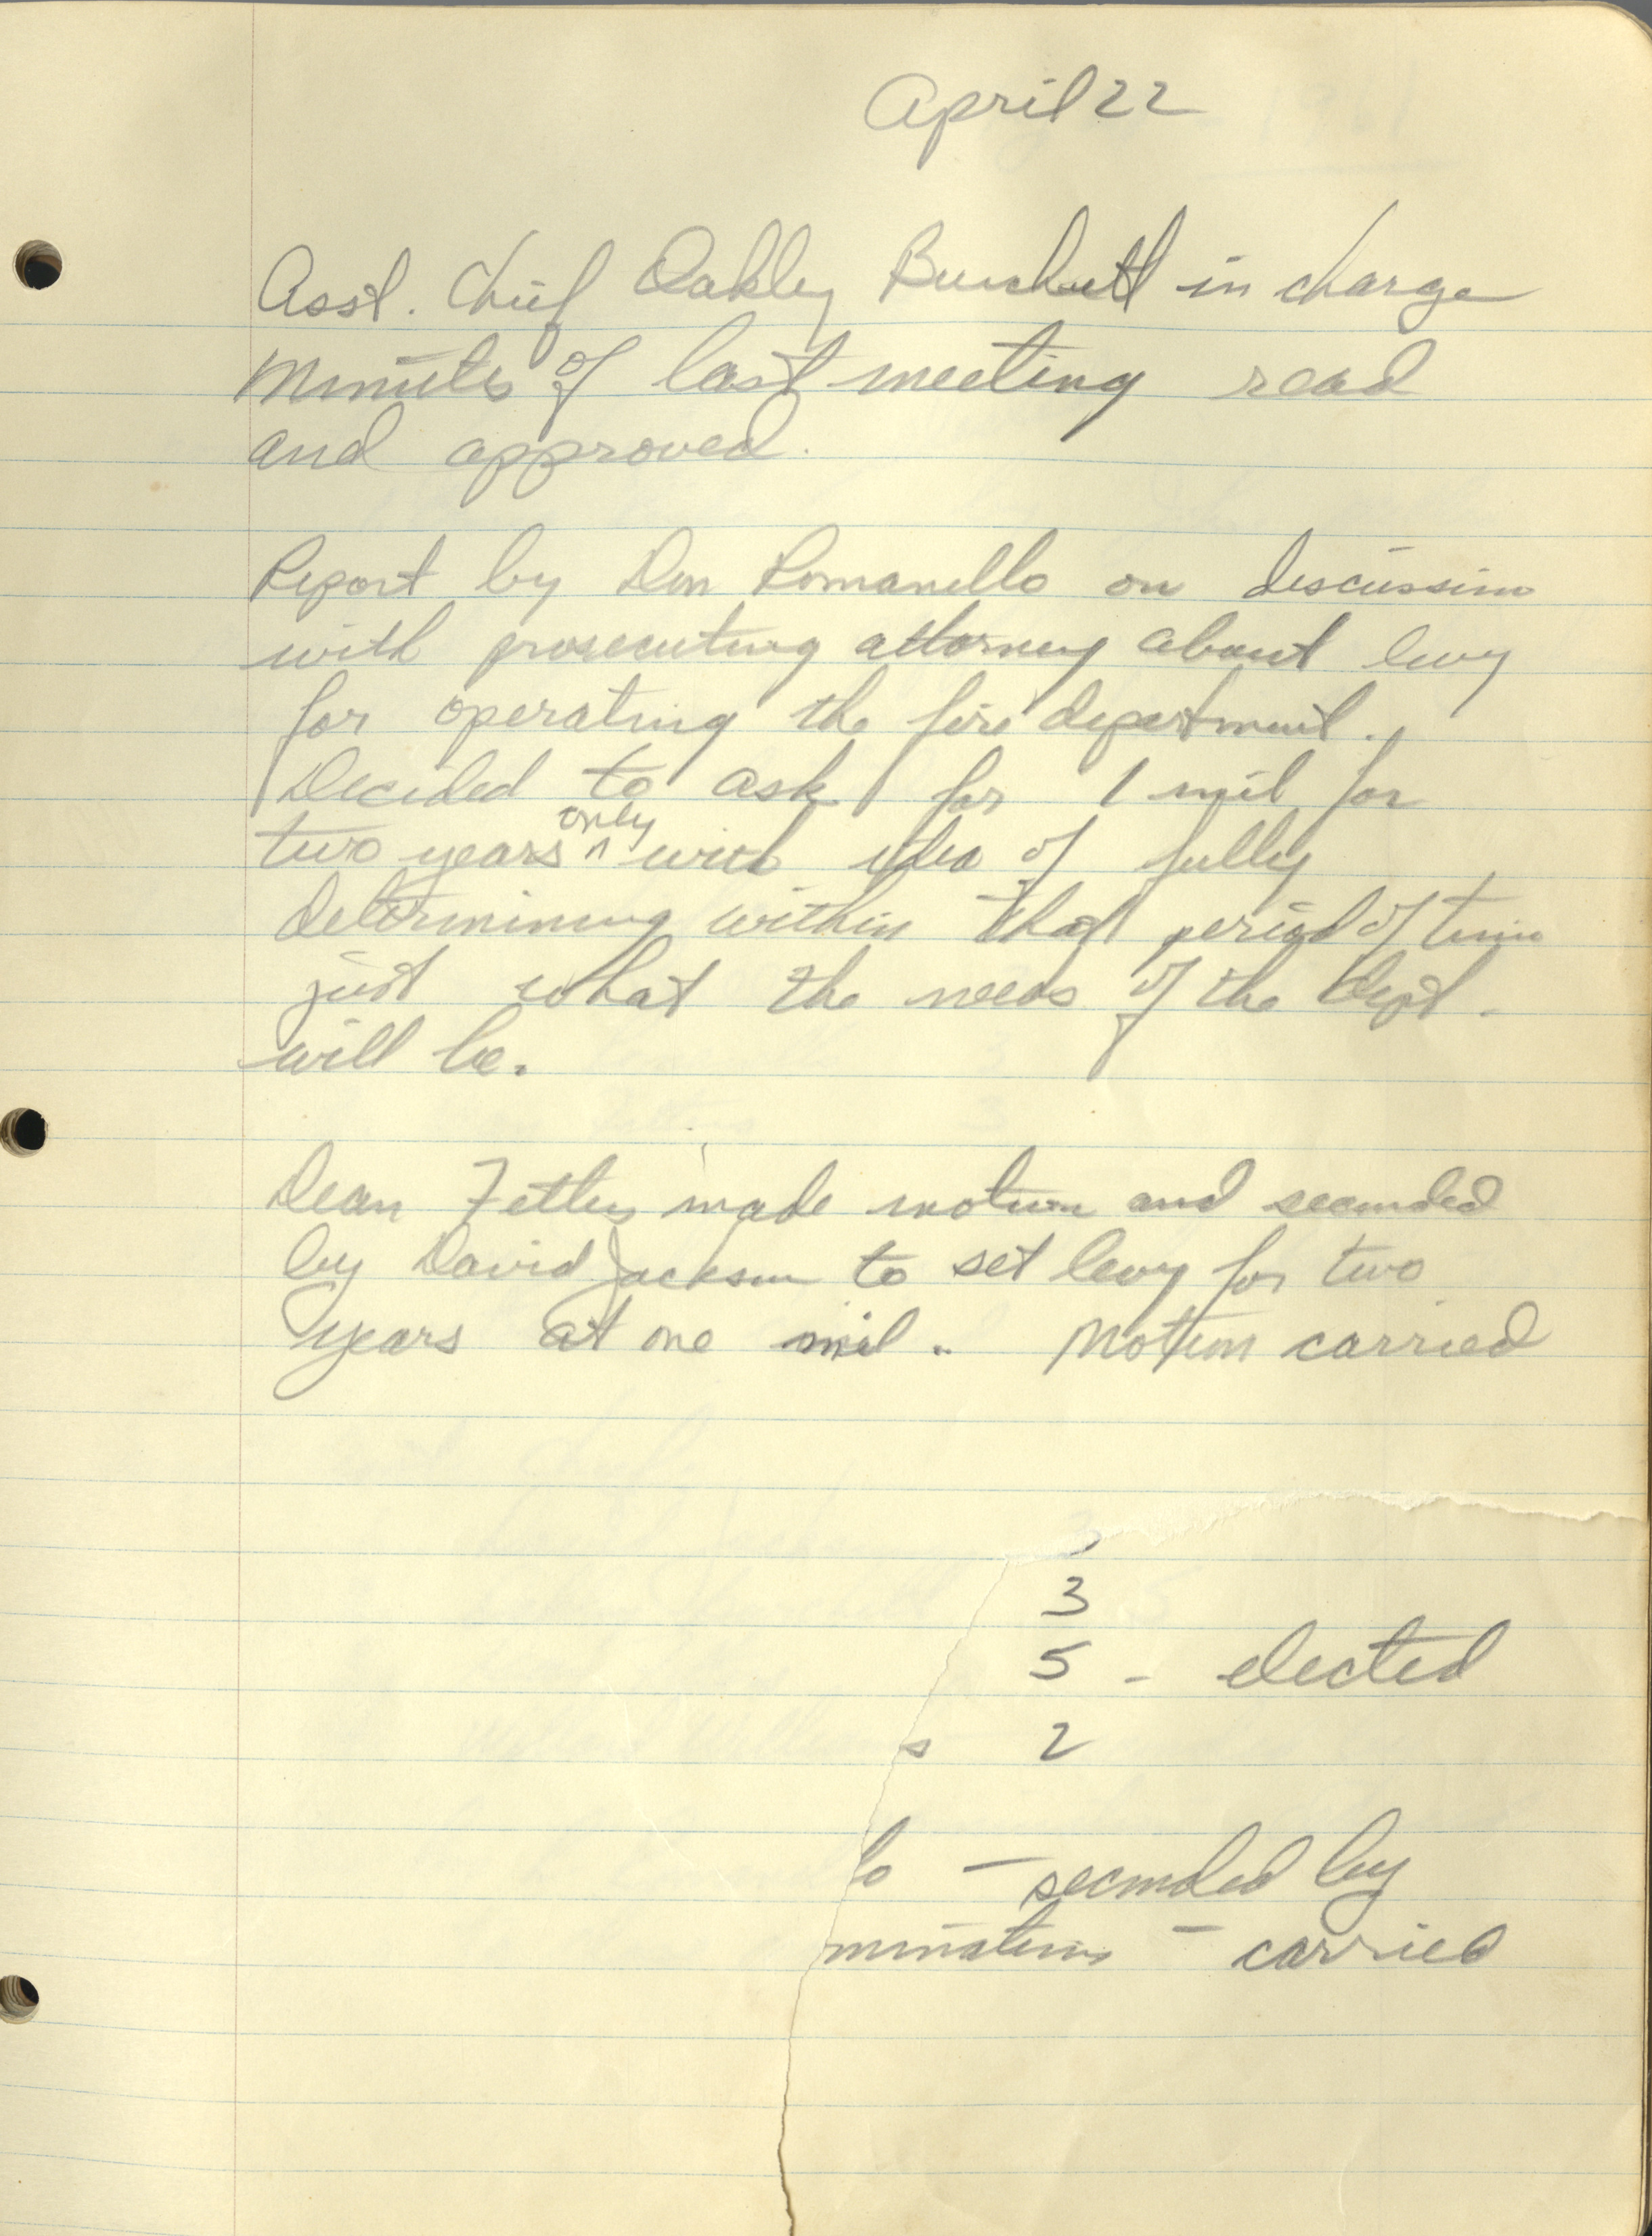 April 22
Asst. Chief Oakley Burchett in charge
Minutes of last meeting read
and approved.
Report by Don Romanello on discussion
with prosecuting attorney about levy
for operating the fire department.
Decided to ask for 1 mil for
two years only with idea of fully
determining within that period of time
just what the needs of the dept.
will be.
Dean Fetters made motion and seconded
by David Jackson to set levy for two
years at one mil. Motion carried
3
5 - elected
s 2
lo - seconded by
minations - carried